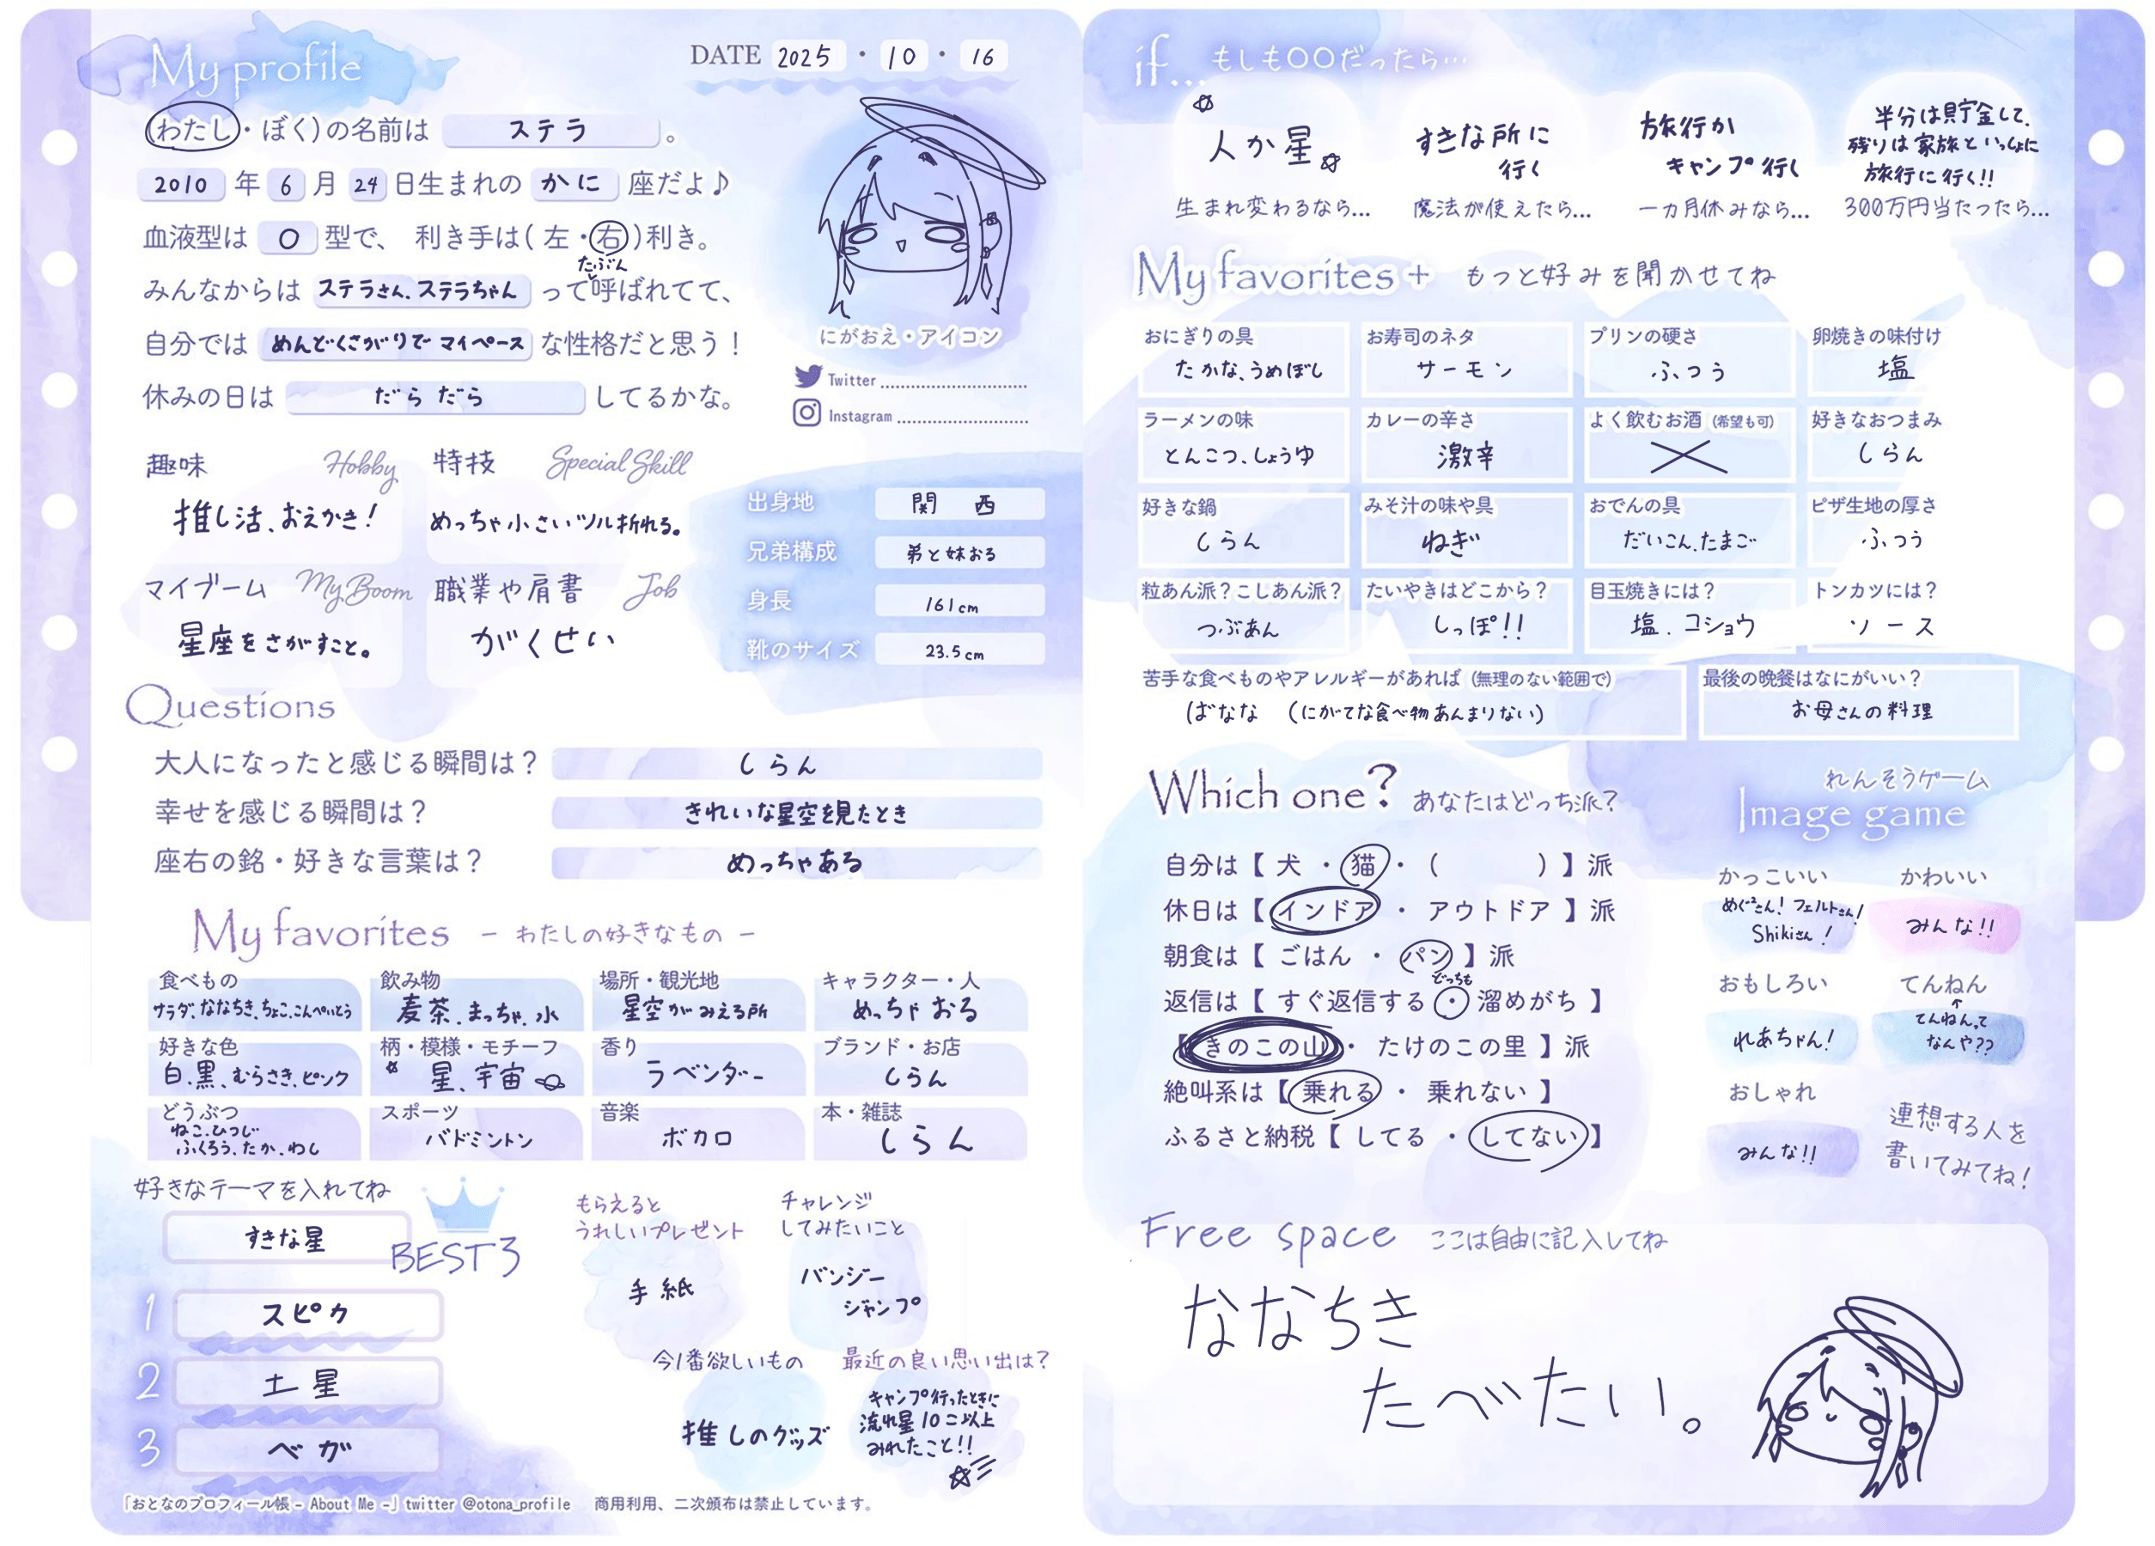 My profile
DATE 2025 ・ 10 ・ 16
(わたし・ぼく)の名前は ステラ 。
2010 年 6 月 24 日生まれの かに 座だよ♪
血液型は O 型で、 利き手は(左・右)利き。
たぶん
みんなからは ステラさん、ステラちゃん って呼ばれてて、
と
自分では めんどくさがりで マイペース な性格だと思う！
休みの日は だらだら してるかな。
にがおえ・アイコン
Twitter
Instagram
趣味 Hobby
推し活、おえかき!
特技 Special Skill
めっちゃ小さいツル折れる。
マイブーム My Boom
星座をさがすこと。
職業や肩書 Job
がくせい
出身地 関西
兄弟構成 弟と妹おる
身長 161cm
靴のサイズ 23.5cm
Questions
大人になったと感じる瞬間は？ しらん
幸せを感じる瞬間は？ きれいな星空を見たとき
座右の銘・好きな言葉は？ めっちゃある
My favorites － わたしの好きなもの －
食べもの
サラダ、ななちき、ちょこ、こんぺいとう
飲み物
麦茶、まっちゃ、水
場所・観光地
星空がみえる所
キャラクター・人
めっちゃおる
好きな色
白、黒、むらさき、ピンク
柄・模様・モチーフ
星、宇宙
香り
ラベンダー
ブランド・お店
しらん
どうぶつ
ねこ、ひつじ
ふくろう、たか、わし
スポーツ
バドミントン
音楽
ボカロ
本・雑誌
しらん
好きなテーマを入れてね
すきな星
BEST3
1 スピカ
2 土星
3 ベガ
もらえると
うれしいプレゼント
手紙
チャレンジ
してみたいこと
バンジー
ジャンプ
今1番欲しいもの
推しのグッズ
最近の良い思い出は？
キャンプ行ったときに
流れ星10こ以上
みれたこと!!
「おとなのプロフィール帳 - About Me -」twitter @otona_profile 商用利用、二次頒布は禁止しています。
if... もしも〇〇だったら…
人か星
生まれ変わるなら…
すきな所に
行く
魔法が使えたら…
旅行か
キャンプ行く
一カ月休みなら…
半分は貯金して、
残りは家族といっしょに
旅行に行く!!
300万円当たったら…
My favorites + もっと好みを聞かせてね
おにぎりの具
たかな、うめぼし
お寿司のネタ
サーモン
プリンの硬さ
ふつう
卵焼きの味付け
塩
ラーメンの味
とんこつ、しょうゆ
カレーの辛さ
激辛
よく飲むお酒 (希望も可)
好きなおつまみ
しらん
好きな鍋
しらん
みそ汁の味や具
ねぎ
おでんの具
だいこん、たまご
ピザ生地の厚さ
ふつう
粒あん派？こしあん派？
つぶあん
たいやきはどこから？
しっぽ!!
目玉焼きには？
塩、コショウ
トンカツには？
ソース
苦手な食べものやアレルギーがあれば (無理のない範囲で)
ばなな (にがてな食べ物あんまりない)
最後の晩餐はなにがいい？
お母さんの料理
Which one? あなたはどっち派？
自分は【 犬 ・ 猫・ ( ) 】派
休日は【 インドア ・ アウトドア 】派
朝食は【 ごはん ・ パン 】派
どっちも
返信は【 すぐ返信する ・ 溜めがち 】
【 きのこの山 ・ たけのこの里 】派
絶叫系は【 乗れる ・ 乗れない 】
ふるさと納税【 してる ・ してない 】
れんそうゲーム
Image game
かっこいい
めぐさん! フェルトさん!
Shikiさん!
かわいい
みんな!!
おもしろい
れあちゃん!
てんねん
てんねんって
なんや??
おしゃれ
みんな!!
連想する人を
書いてみてね！
Free space ここは自由に記入してね
ななちき
たべたい。